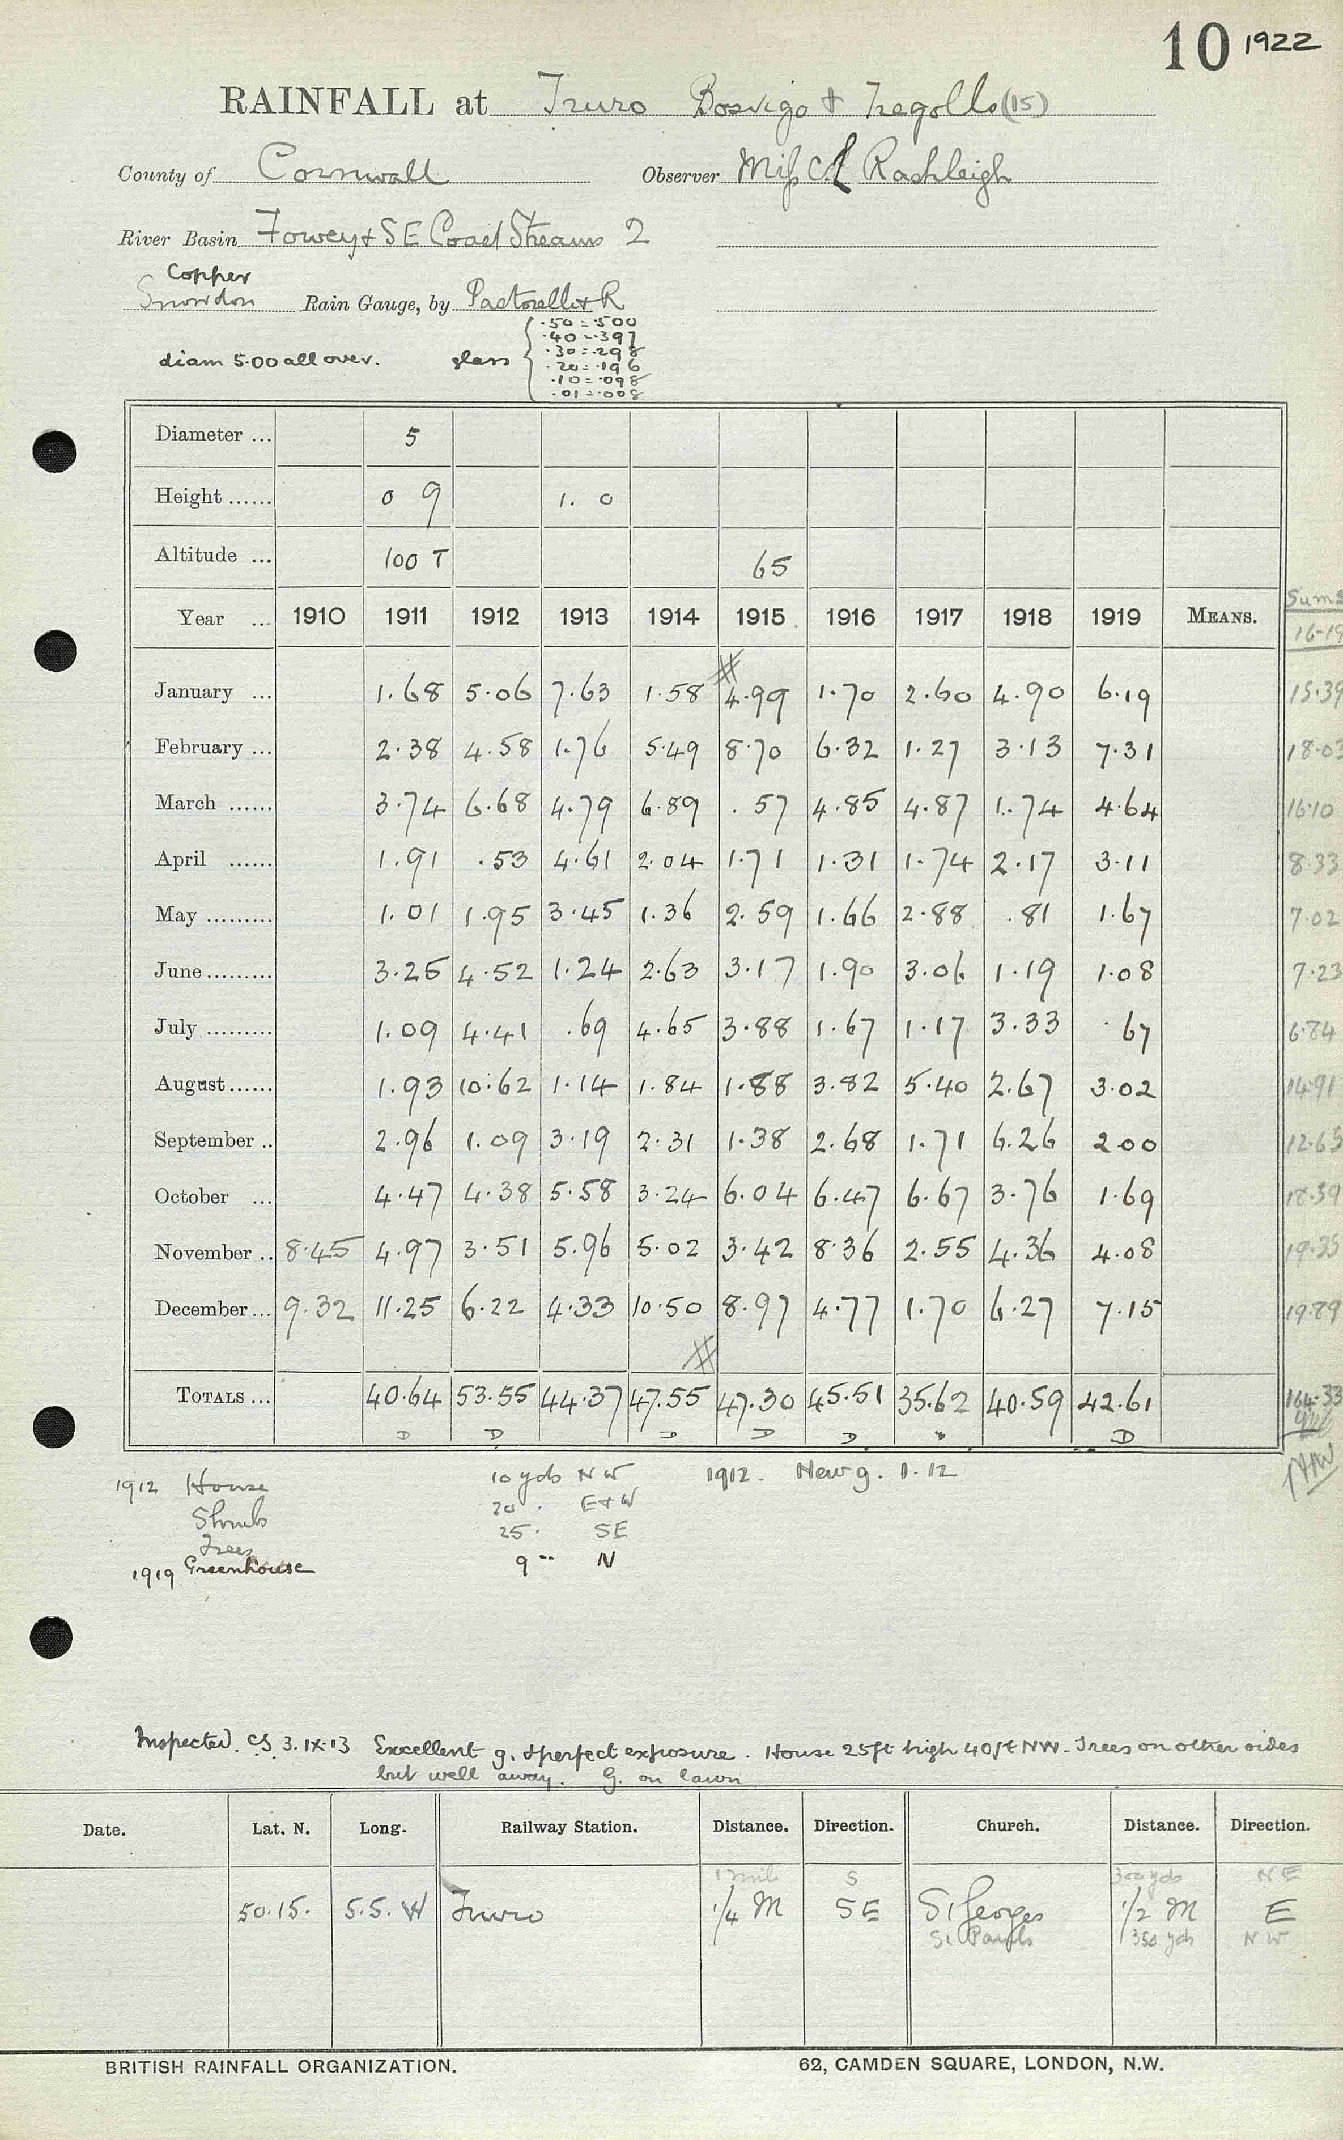 10 1922
RAINFALL at Truro Bosvigo & Tregolls (15)
County of Cornwall Observer Miss Rashleigh
River Basin Fowey & SE Coast Streams 2
Copper
Snowdon Rain Gauge, by Pastorelli & R
diam 5.00 all over. glass
.50 = .500
.40 = .397
.30 = .298
.20 = .196
.10 = .098
.01 = .008
Diameter ... 5
Height ...... 0 9 1. 0
Altitude ... 100 T 65
Year ... 1910 1911 1912 1913 1914 1915 1916 1917 1918 1919 MEANS. Sums 16-19
January ... 1.68 5.06 7.63 1.58 4.99 1.70 2.60 4.90 6.19 15.39
February ... 2.38 4.58 1.76 5.49 8.70 6.32 1.27 3.13 7.31 18.03
March ...... 3.74 6.68 4.79 6.89 .57 4.85 4.87 1.74 4.64 16.10
April ...... 1.91 .53 4.61 2.04 1.71 1.31 1.74 2.17 3.11 8.33
May ......... 1.01 1.95 3.45 1.36 2.59 1.66 2.88 .81 1.67 7.02
June ......... 3.25 4.52 1.24 2.63 3.17 1.90 3.06 1.19 1.08 7.23
July ......... 1.09 4.41 .69 4.65 3.88 1.67 1.17 3.33 .67 6.84
August ...... 1.93 10.62 1.14 1.84 1.88 3.82 5.40 2.67 3.02 14.91
September .. 2.96 1.09 3.19 2.31 1.38 2.68 1.71 6.26 2.00 12.65
October ... 4.47 4.38 5.58 3.24 6.04 6.47 6.67 3.76 1.69 18.59
November .. 8.45 4.97 3.51 5.96 5.02 3.42 8.36 2.55 4.36 4.08 19.35
December ... 9.32 11.25 6.22 4.33 10.50 8.97 4.77 1.70 6.27 7.15 19.89
TOTALS ... 40.64 53.55 44.37 47.55 47.30 45.51 35.62 40.59 42.61 164.33
D D D D D D
1912 House 10 yds NW 1912. New g. 1.12
Shrubs 20 . E+W
Trees 25 . SE
1919 Greenhouse 9 " N
Inspected. CS. 3.IX.13 Excellent g. & perfect exposure. House 25ft high 40ft NW. Trees on other sides
but well away. G. on lawn
Date. Lat. N. Long. Railway Station. Distance. Direction. Church. Distance. Direction.
1 mile S 300 yds NE
50.15. 5.5. W Truro 1/4 M SE St Georges 1/2 M E
St Pauls 350 yds NW
BRITISH RAINFALL ORGANIZATION. 62, CAMDEN SQUARE, LONDON, N.W.